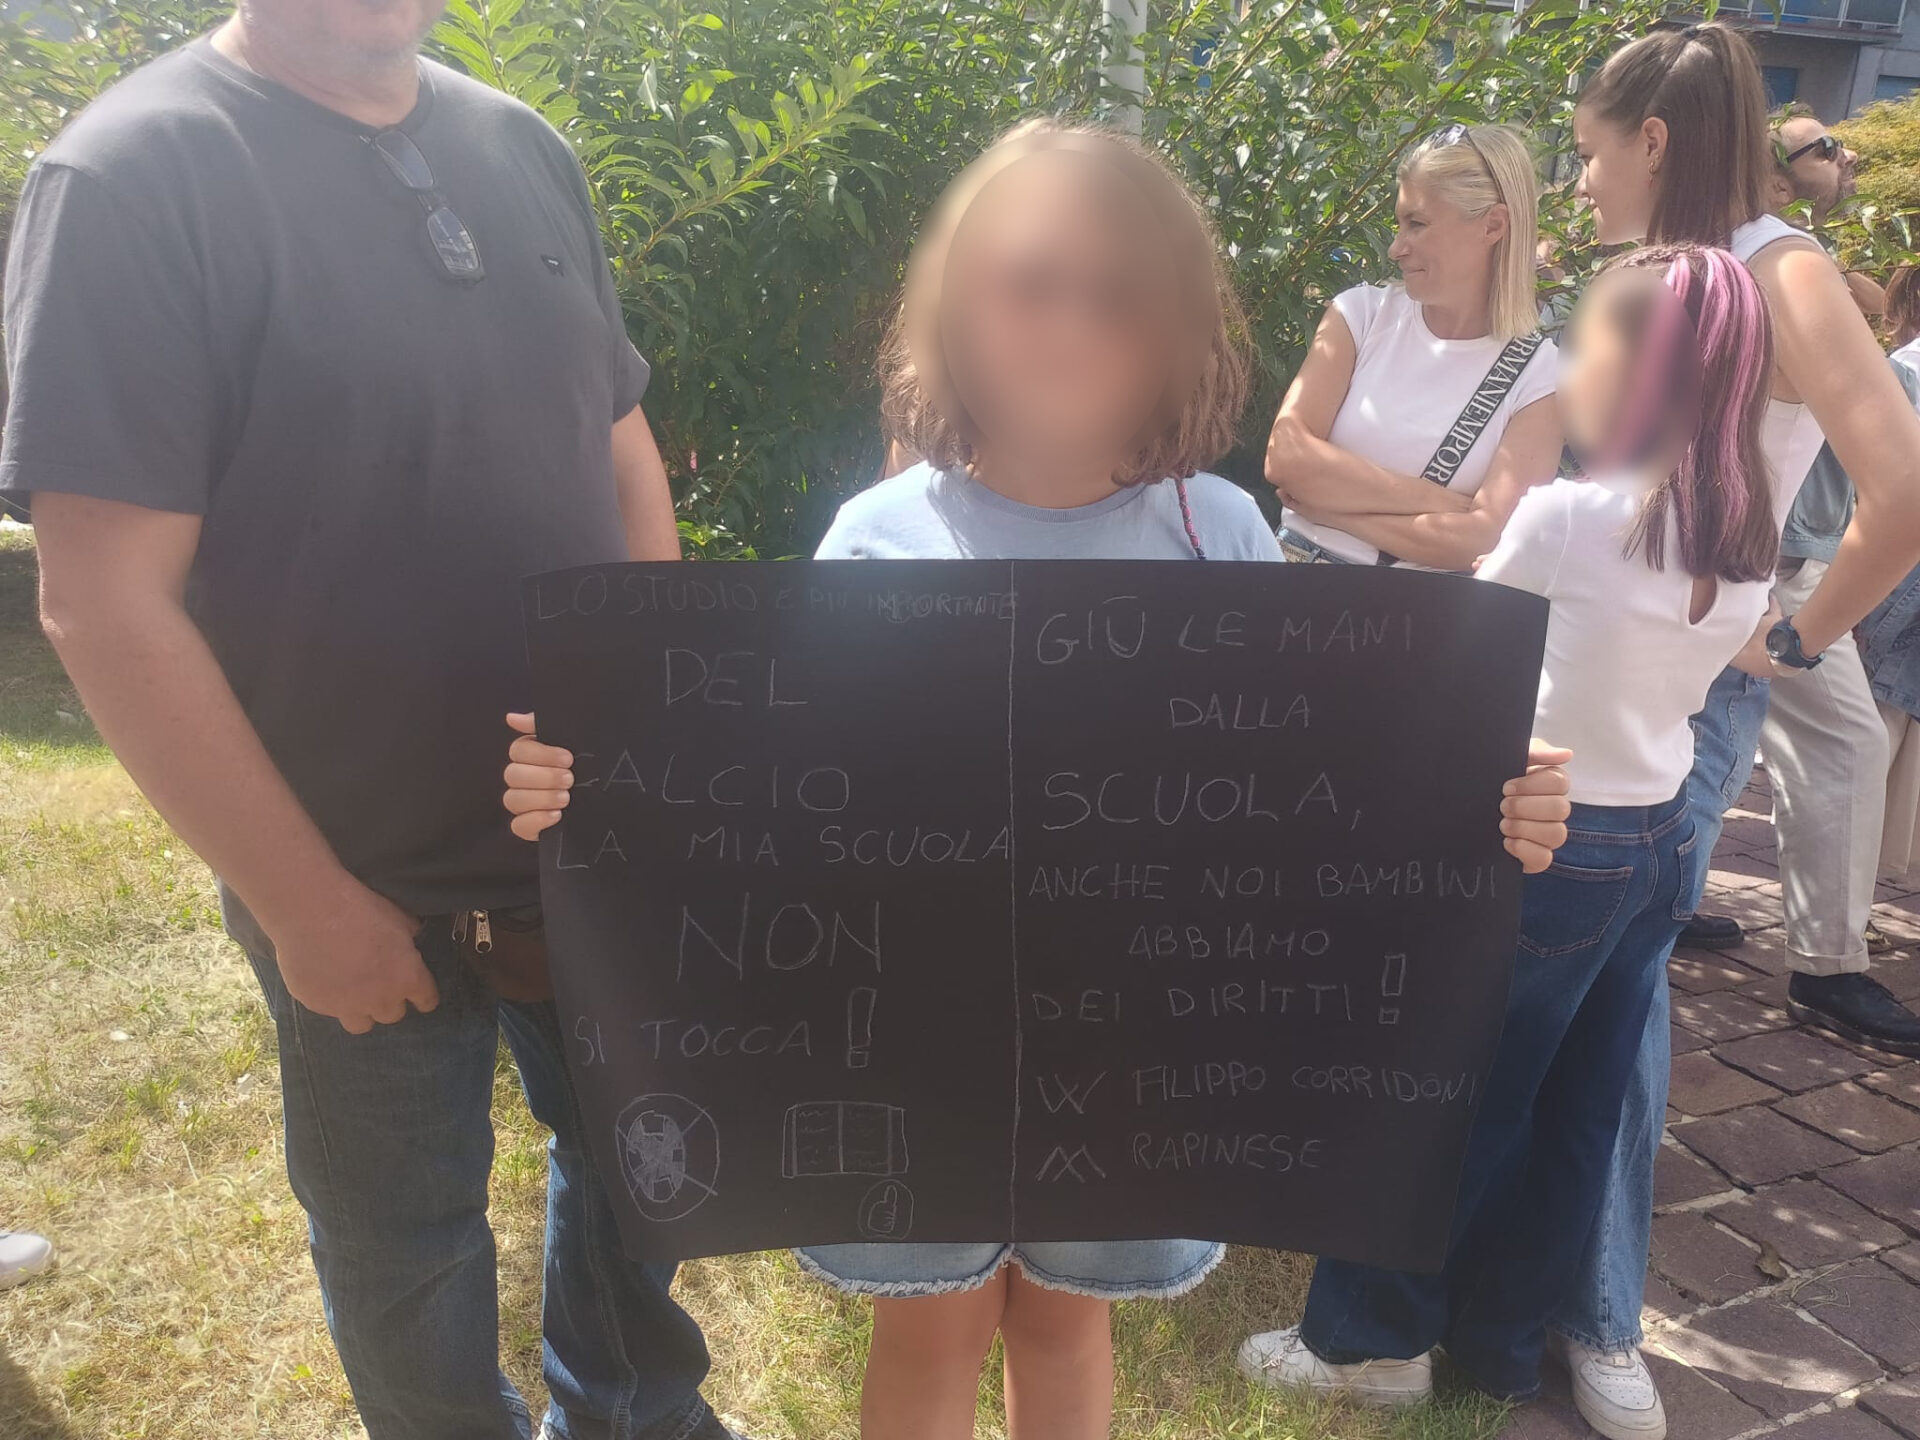 LO STUDIO E PIU IMPORTANTE
DEL
CALCIO
LA MIA SCUOLA
NON
SI TOCCA!
GIÙ LE MANI
DALLA
SCUOLA,
ANCHE NOI BAMBINI
ABBIAMO
DEI DIRITTI!
W FILIPPO CORRIDONI
M RAPINESE
ARMANIEMPOR